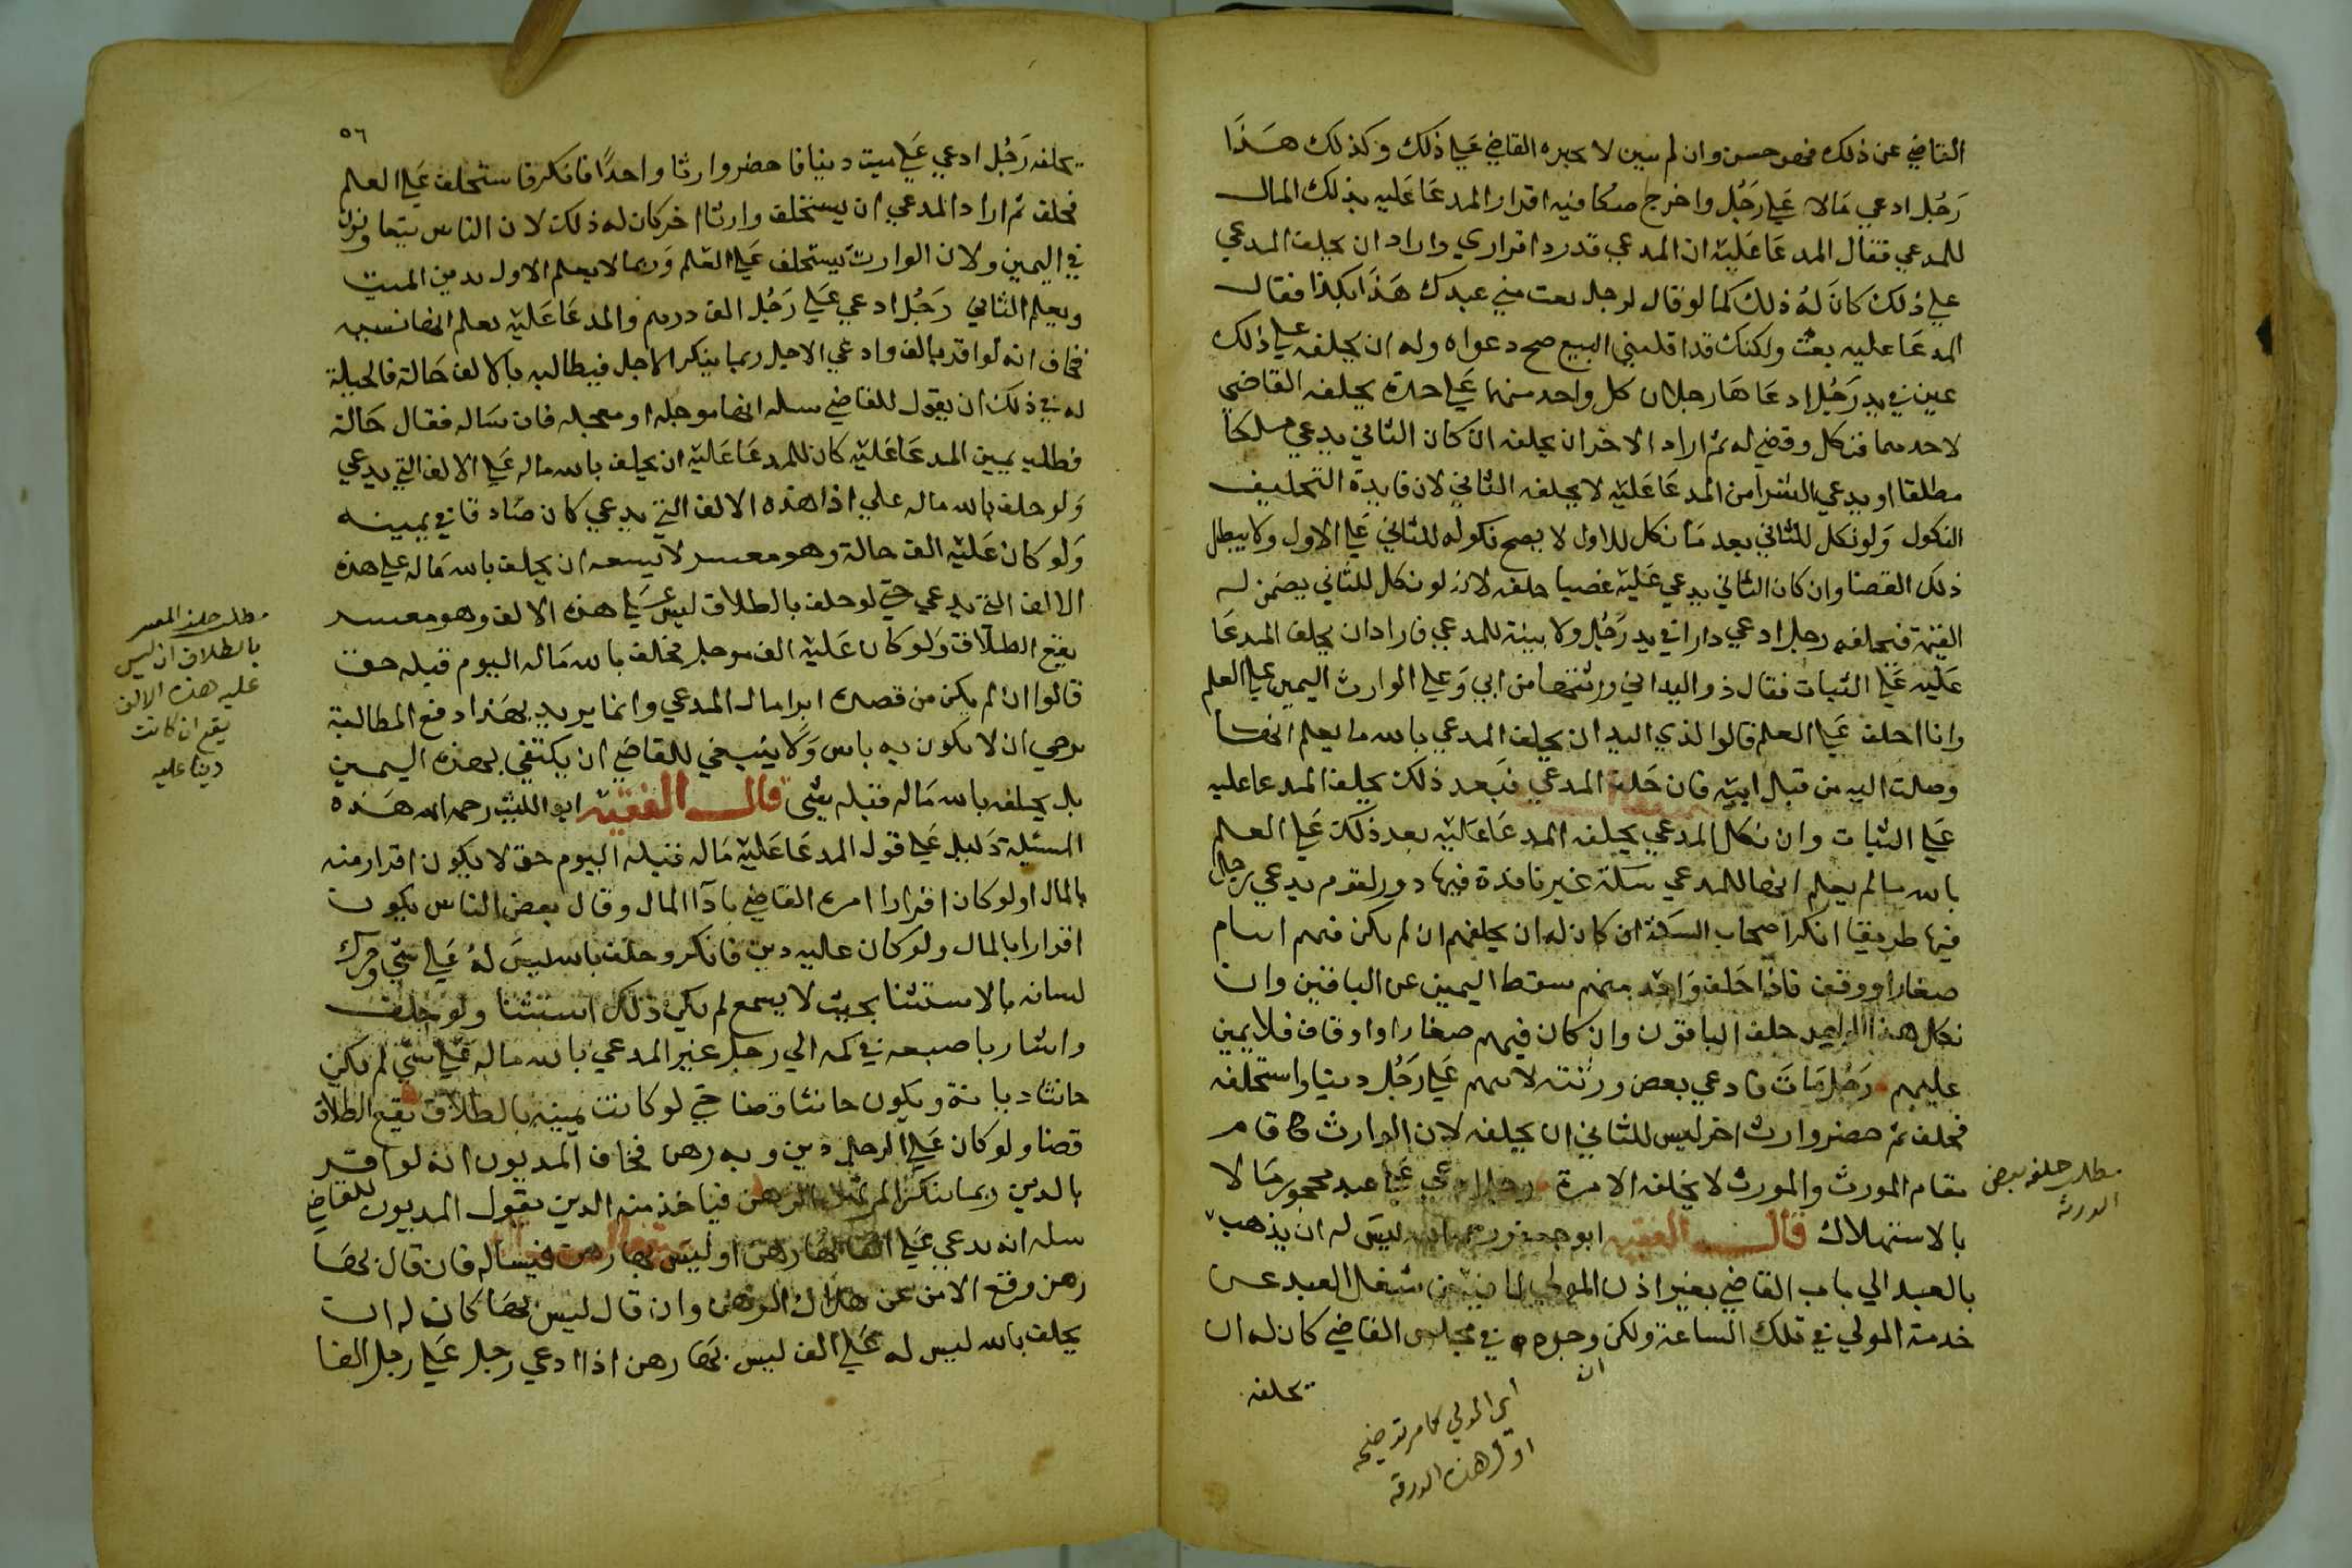 القاضي عن ذلك فهو حسن وان لم يبين لا يجبره القاضي علي ذلك وكذلك هذا
رجل ادعي مالا علي رجل واخرج صكا فيه اقرار المدعا عليه بذلك المال
للمدعي فقال المدعا عليه ان المدعي قد رد اقراري واراد ان يحلف المدعي
علي ذلك كان له ذلك كما لو قال لرجل بعت مني عبدك هذا بكذا فقال
المدعا عليه بعت ولكنك قد اقلتني البيع صح دعواه وله ان يحلفه علي ذلك
عين في يد رجل ادعاها رجلان كل واحد منهما علي حدة يحلفه القاضي
لاحدهما فنكل وقضي له ثم اراد الاخر ان يحلفه ان كان الثاني يدعي ملكا
مطلقا او يدعي الشرا من المدعا عليه لا يحلفه الثاني لان فايدة التحليف
النكول ولو نكل للثاني بعد ما نكل للاول لا يصح نكوله للثاني علي الاول ولا يبطل
ذلك القضا وان كان الثاني يدعي عليه غصبا حلفه لانه لو نكل للثاني يضمن له
القيمة فيحلفه رجل ادعي دارا في يد رجل ولا بينة للمدعي فاراد ان يحلف المدعا
عليه علي الثبات فقال ذو اليد اني ورثتها من ابي وعلي الوارث اليمين علي العلم
وانا احلف علي العلم قالوا لذي اليد ان يحلف المدعي بالله ما يعلم انها
وصلت اليه من قبل ابيه فان حلف المدعي فبعد ذلك يحلف المدعا عليه
علي الثبات وان نكل المدعي يحلفه المدعا عليه بعد ذلك علي العلم
بالله ما لم يعلم انها للمدعي سكة غير نافذة فيها دور لقوم يدعي رجل
فيها طريقا انكر اصحاب السكة ان كان له ان يحلفهم ان لم يكن فيهم ايتام
صغارا ووقف فاذا حلف واحد منهم سقط اليمين عن الباقين وان
نكل هذا الواحد حلف الباقون وان كان فيهم صغارا واوقاف فلا يمين
عليهم رجل مات فادعي بعض ورثته لابيهم علي رجل دينا واستحلفه
فحلف ثم حضر وارث اخر ليس للثاني ان يحلفه لان الوارث قام
مقام المورث والمورث لا يحلفه الا مرة رجل ادعي علي عبد محجور مالا
بالاستهلاك قال الفقيه ابو جعفر رحمه الله ليس له ان يذهب
بالعبد الي باب القاضي بغير اذن المولي لما فيه من شغل العبد عن
خدمة المولي في تلك الساعة ولكن وجده في مجلس القاضي كان له ان
يحلفه
ان
اي المولي كما مر توضيحه
اول هذه الورقه
مطلب حلفه بعض
الورثه
٥٦
يحلفه رجل ادعي علي ميت دينا فاحضر وارثا واحدا فانكر فاستحلف علي العلم
فحلف ثم اراد المدعي ان يستحلف وارثا اخر كان له ذلك لان الناس يتفاوتون
في اليمين ولان الوارث يستحلف علي العلم وربما لا يعلم الاول بدين الميت
ويعلم الثاني رجل ادعي علي رجل الف درهم والمدعا عليه يعلم انها نسيه
فخاف انه لو اقر بالف وادعي الاجل ربما ينكر الاجل فيطالبه بالالف حالة فالحيلة
له في ذلك ان يقول للقاضي سله انها موجله او معجله فان ساله فقال حالة
فطلب يمين المدعا عليه كان للمدعا عليه ان يحلف بالله ماله علي الالف التي يدعي
ولو حلف بالله ماله علي اذا هذه الالف التي يدعي كان صادقا في يمينه
ولو كان عليه الف حالة وهو معسر لا يسعه ان يحلف بالله ماله علي هذه
الالف التي يدعي حتي لو حلف بالطلاق ليس علي هذه الالف وهو معسر
يقع الطلاق ولو كان عليه الف موجل فحلف بالله ماله اليوم قبله حق
قالوا ان لم يكن من قصده ابرا مال المدعي وانما يريد بهذا دفع المطالبة
يرجي ان لا يكون به باس ولا ينبغي للقاضي ان يكتفي بهذه اليمين
بل يحلفه بالله ماله قبله شي قال الفقيه ابو الليث رحمه الله هذه
المسئلة دليل علي قول المدعا عليه ماله قبله اليوم حق لا يكون اقرار منه
بالمال اولو كان اقرارا امره القاضي بادا المال وقال بعض الناس يكون
اقرارا بالمال ولو كان عليه دين فانكر وحلف بالله ليس له علي شي وحرك
لسانه بالاستثنا بحيث لا يسمع لم يكن ذلك استثنا ولو حلف
واشار باصبعه في كمه الي رجل غير المدعي بالله ماله علي شي لم يكن
حانثا ديانة ويكون حانثا قضا حتي لو كانت يمينه بالطلاق يقع الطلاق
قضا ولو كان علي الرجل دين وبه رهن فخاف المديون انه لو اقر
بالدين ربما ينكر المرتهن الرهن فياخذ منه الدين يقول المديون للقاضي
سله انه يدعي علي الفا لها رهن او ليس بها رهن فيساله فان قال بها
رهن وقع الامن عن هلاك الرهن وان قال ليس بها كان له ان
يحلف بالله ليس له علي الف ليس بها رهن اذا ادعي رجل علي رجل الفا
مطلب حلف المعسر
بالطلاق ان ليس
عليه هذه الالف
يقع ان كانت
دينا عليه